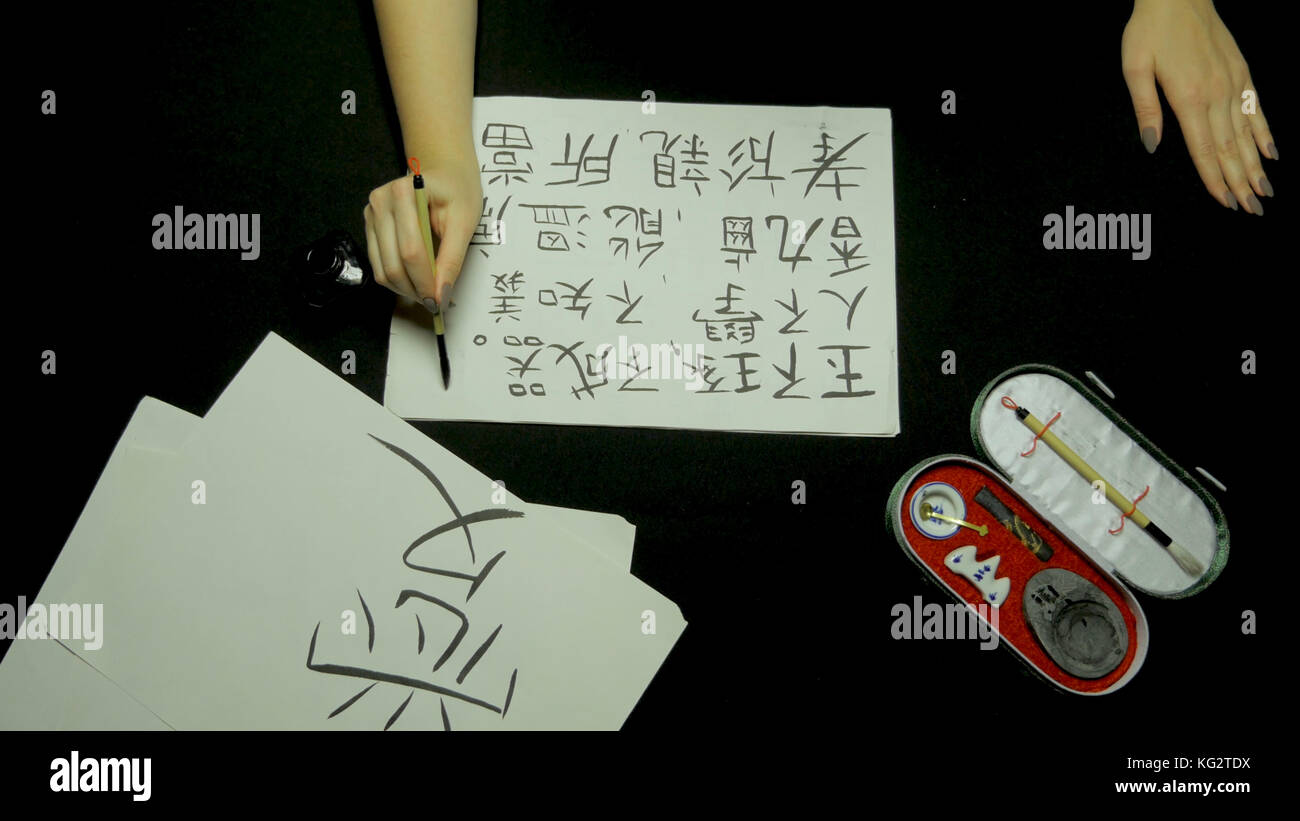 玉不琢,不成器。
人不學,不知義
香九齒,能溫
孝於親,所當
愛
alamy
alamy
alamy
alamy
alamy
Image ID: KG2TDX
www.alamy.com